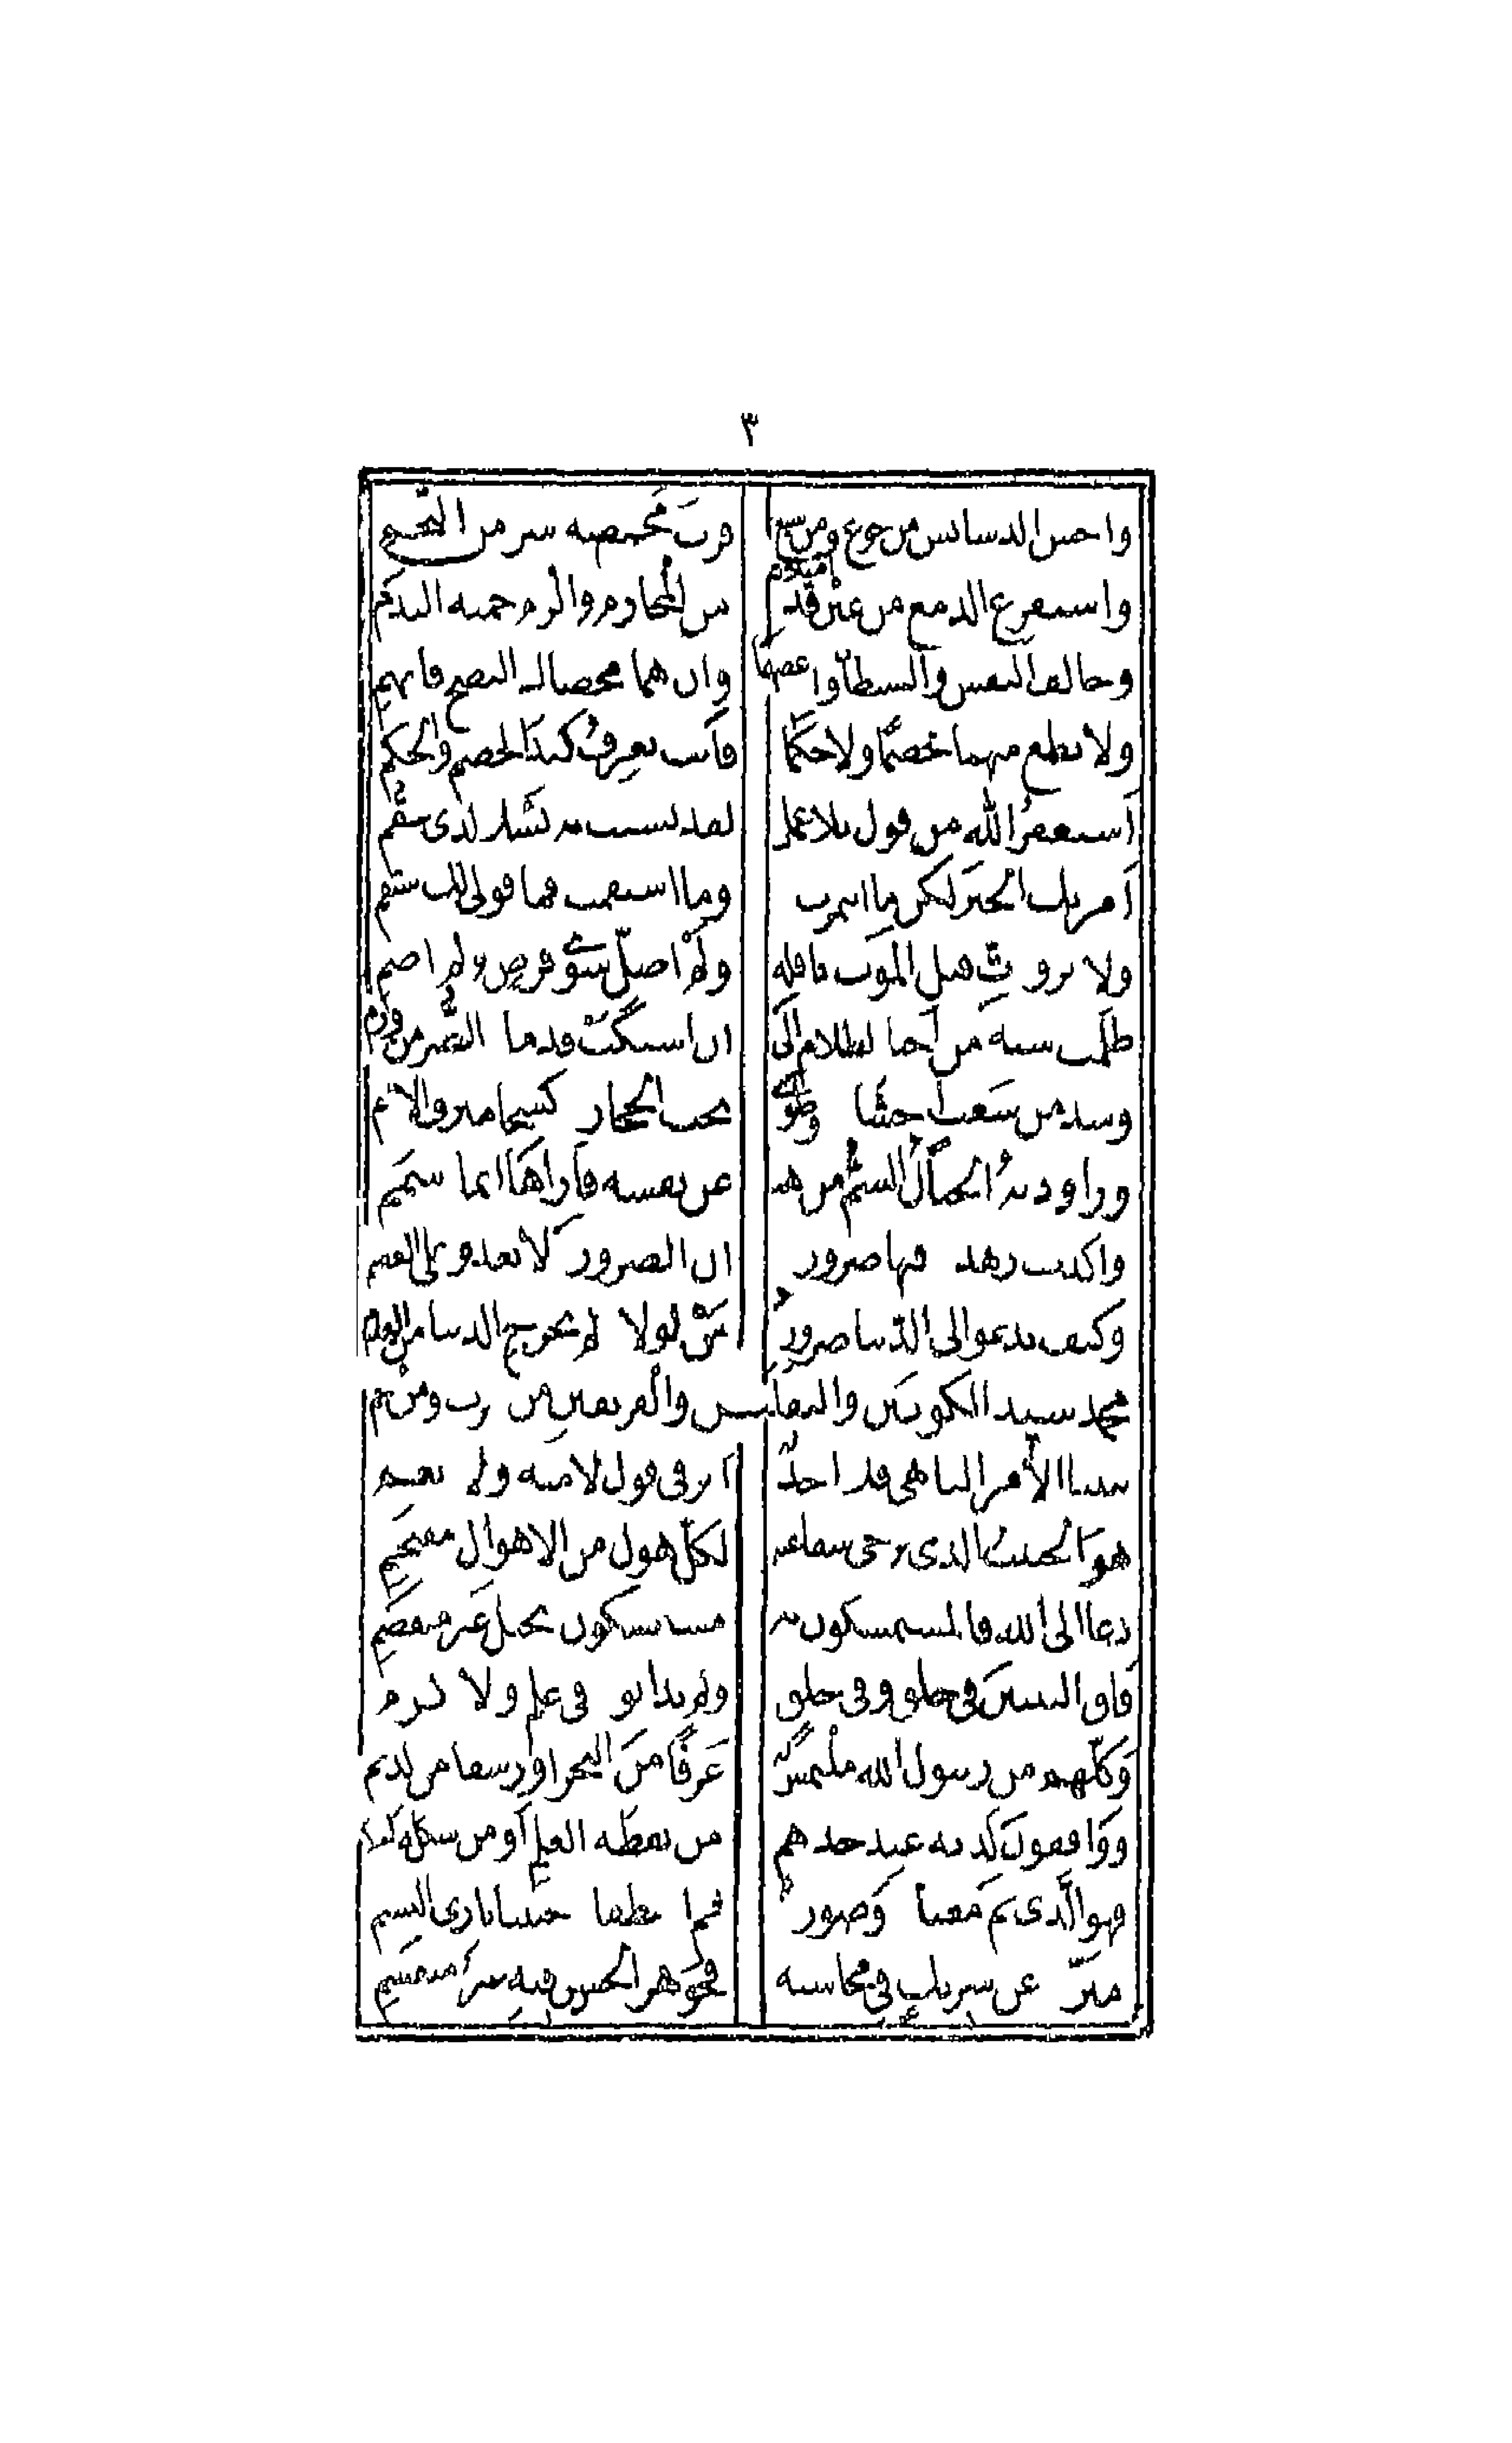 ٣
واخش الدسائس من جوع ومن شبع فرب مخمصة شر من التخم
واستفرغ الدمع من عين قد امتلات من المحارم والزم حمية الندم
وخالف النفس والشيطان واعصهما وان هما محضاك النصح فاتهم
ولا تطع منهما خصمًا ولا حكمًا فأنت تعرف كيد الخصم والحكم
أستغفر الله من قول بلا عمل لقد نسبت به نسلا لذى عقم
أمرتك الخير لكن ما ائتمرت به وما استقمت فما قولى لك استقم
ولا تزودت قبل الموت نافلة ولم اصل سوى فرض ولم اصم
ظلمت سنة من أحيا الظلام الى ان اشتكت قدماه الضر من ورم
وشد من سغب احشاءه وطوى تحت الحجارة كشحا مترف الادم
وراودته الجبال الشم من ذهب عن نفسه فأراها ايما شمم
واكدت زهده فيها ضرورته ان الضرورة لا تعدو على العصم
وكيف تدعو الى الدنيا ضرورة من لولاه لم تخرج الدنيا من العدم
محمد سيد الكونين والثقلين والفريقين من عرب ومن عجم
نبينا الأمر الناهى فلا احد ابر فى قول لا منه ولا نعم
هو الحبيب الذى ترجى شفاعته لكل هول من الاهوال مقتحم
دعا الى الله فالمستمسكون به مستمسكون بحبل غير منفصم
فاق النبيين فى خلق وفى خلق ولم يدانوه فى علم ولا كرم
وكلهم من رسول الله ملتمس غرفًا من البحر او رشفا من الديم
وواقفون لديه عند حدهم من نقطة العلم أو من شكلة الحكم
فهو الذى تم معناه وصورته ثم اصطفاه حبيبا بارئ النسم
منزه عن شريك فى محاسنه فجوهر الحسن فيه غير منقسم